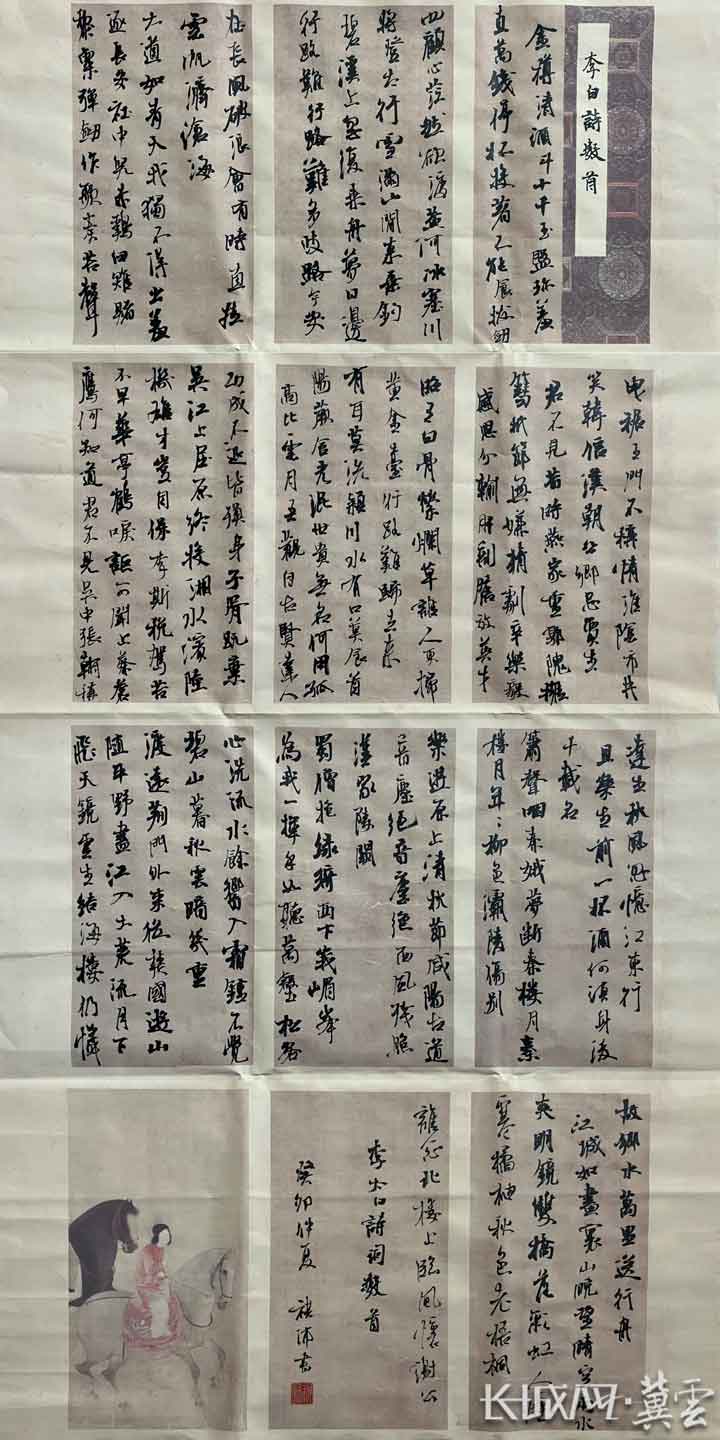 李白詩數首
金樽清酒斗十千玉盤珍羞
直萬錢停杯投箸不能食拔劍
四顧心茫然欲渡黃河冰塞川
將登太行雪滿山閒來垂釣
碧溪上忽復乘舟夢日邊
行路難行路難多歧路今安
在長風破浪會有時直挂
雲帆濟滄海
大道如青天我獨不得出羞
逐長安社中兒赤雞白雉賭
梨栗彈劍作歌奏苦聲
曳裾王門不稱情淮陰市井
笑韓信漢朝公卿忌賈生
君不見昔時燕家重郭隗擁
篲折節無嫌猜劇辛樂毅
感恩分輸肝剖膽效英才
昭王白骨縈爛草誰人更掃
黃金臺行路難歸去來
有耳莫洗潁川水有口莫食首
陽蕨含光混世貴無名何用孤
高比雲月吾觀自古賢達人
功成不退皆殞身子胥既棄
吳江上屈原終投湘水濱陸
機雄才豈自保李斯稅駕苦
不早華亭鶴唳詎可聞上蔡蒼
鷹何足道君不見吳中張翰稱
達生秋風忽憶江東行
且樂生前一杯酒何須身後
千載名
簫聲咽秦娥夢斷秦樓月秦
樓月年〻柳色灞陵傷別
樂遊原上清秋節咸陽古道
音塵絕音塵絕西風殘照
漢家陵闕
蜀僧抱綠綺西下峨嵋峰
為我一揮手如聽萬壑松客
心洗流水餘響入霜鐘不覺
碧山暮秋雲暗幾重
渡遠荊門外來從楚國遊山
隨平野盡江入大荒流月下
飛天鏡雲生結海樓仍憐
故鄉水萬里送行舟
江城如畫裏山晚望晴空兩水
夾明鏡雙橋落彩虹人煙
寒橘柚秋色老梧桐
誰念北樓上臨風懷謝公
李太白詩詞數首
癸卯仲夏 書
长城网·冀雲